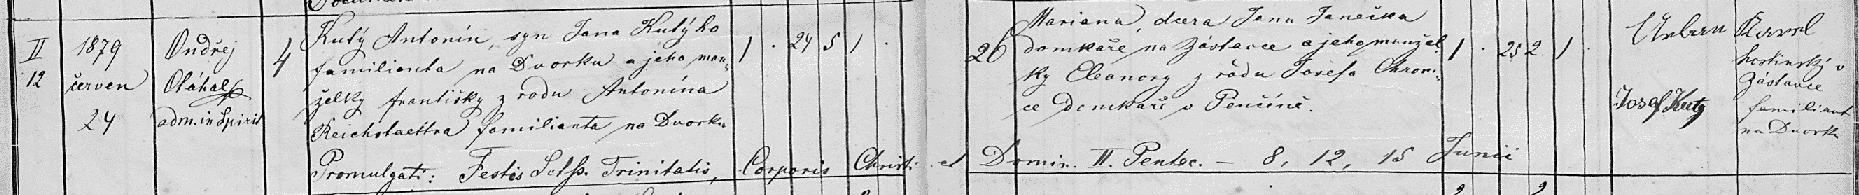 II 1879 Ondřej 4 Kutý Antonín, syn Jana Kutýho 1 . 24 5 1 . 26 Mariana, dcera Jana Janečka 1 . 25 2 1 Urban Karel
12 červen Otáhal familianta na Dvorku a jeho man- domkáře, na Zástavce a jeho manžel- hostinský v
24 adm. in Spirit želky Františky z rodu Antonína ky Eleanory z rodu Josefa Chrom- Zástavce
Reichstaettra familianta na Dvorku ce domkáře v Penčíně. Josef Kutý familiant
na Dvorku
Promulgati: Festis Sctss. Trinitatis, Corporis Christi et Domin. II. Pentec. – 8, 12, 15 Junii